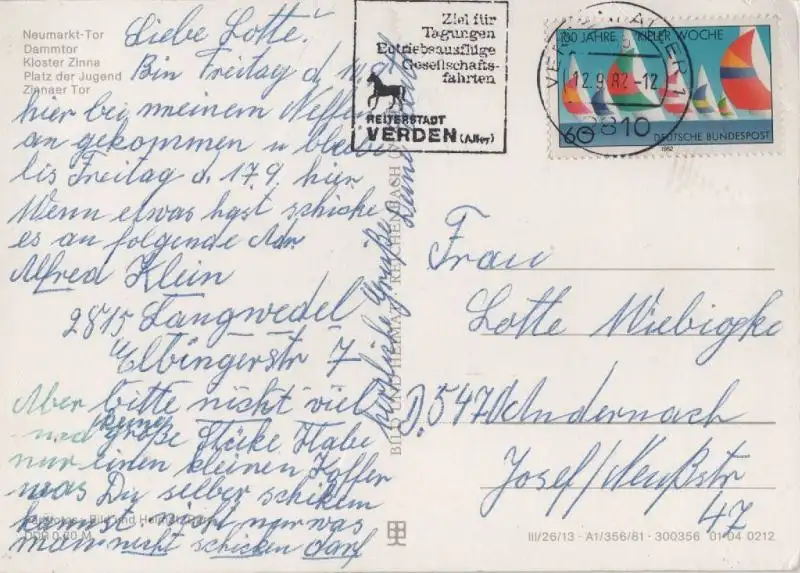 Neumarkt-Tor
Dammtor
Kloster Zinna
Platz der Jugend
Zinnaer Tor
Liebe Lotte!
Bin Freitag d. 11.9.
hier bei meinem Neffen
an gekommen u bleibe
bis Freitag d. 17.9. hier
Wenn etwas hast schicke
es an folgende Adr.
Alfred Klein
2815 Langwedel
Elbingerstr 7
Aber bitte nicht viel
und keine große Stücke Habe
nur einen kleinen Koffer
was Du selber schiken
kannst nicht nur was
man nicht schicken darf
herzliche Grüße
BILD UND HEIMAT REICHENBACH
Bild und Heimat
DDR 0,60 M
Ziel für
Tagungen
Betriebsausflüge
Gesellschafts-
fahrten
REITERSTADT
VERDEN (Aller)
VERDEN, ALLER 1
12.9.82-12
2810
100 JAHRE KIELER WOCHE
60 DEUTSCHE BUNDESPOST
1982
Frau
Lotte Wiebigke
D. 5470 Andernach
Josef/Neußstr
47
III/26/13 · A1/356/81 · 300356 01 04 0212